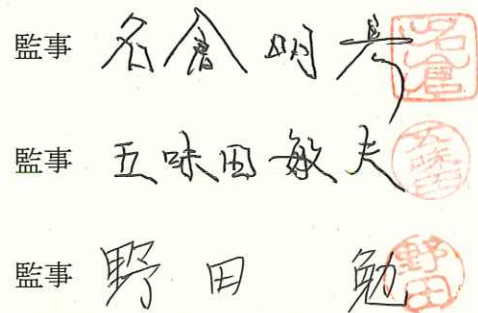 監事 名倉明考 名倉
監事 五味田敏夫 五味田
監事 野田 勉 野田